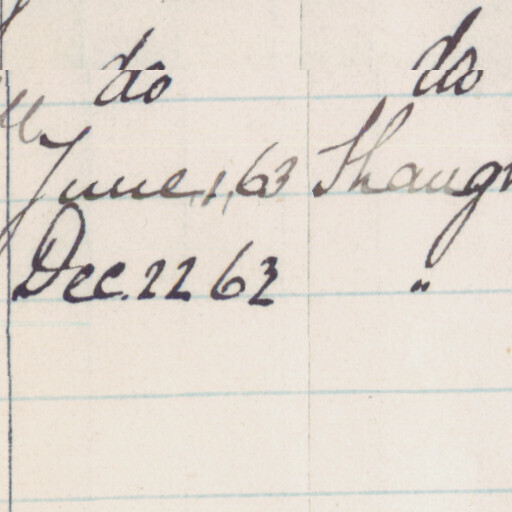 do do
June 1, 63 Shangh
Dec. 22 62 "